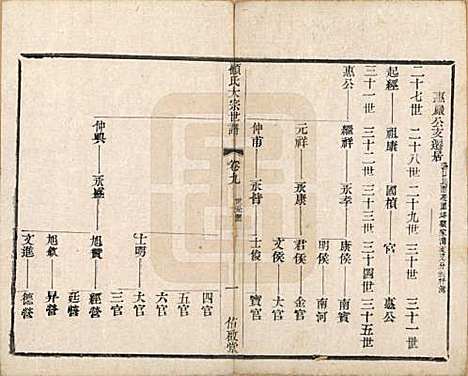 惠嚴公支遷居
二十七世 二十八世 二十九世 三十世 三十一世
起經 祖康 國楨 宮 惠公
三十一世 三十二世 三十三世 三十四世 三十五世
惠公 繼祥 永孝 康侯 南賓
明侯 南河
元祥 永康 君侯 金官
文侯 大官
仲甫 永侍 士俊 寶官
顧氏大宗世譜 卷九 一 佑啟堂
四官
五官
六官
士明 大官
三官
仲興 永盛 旭贊 經營
廷營
旭欽 昇營
文進 德營